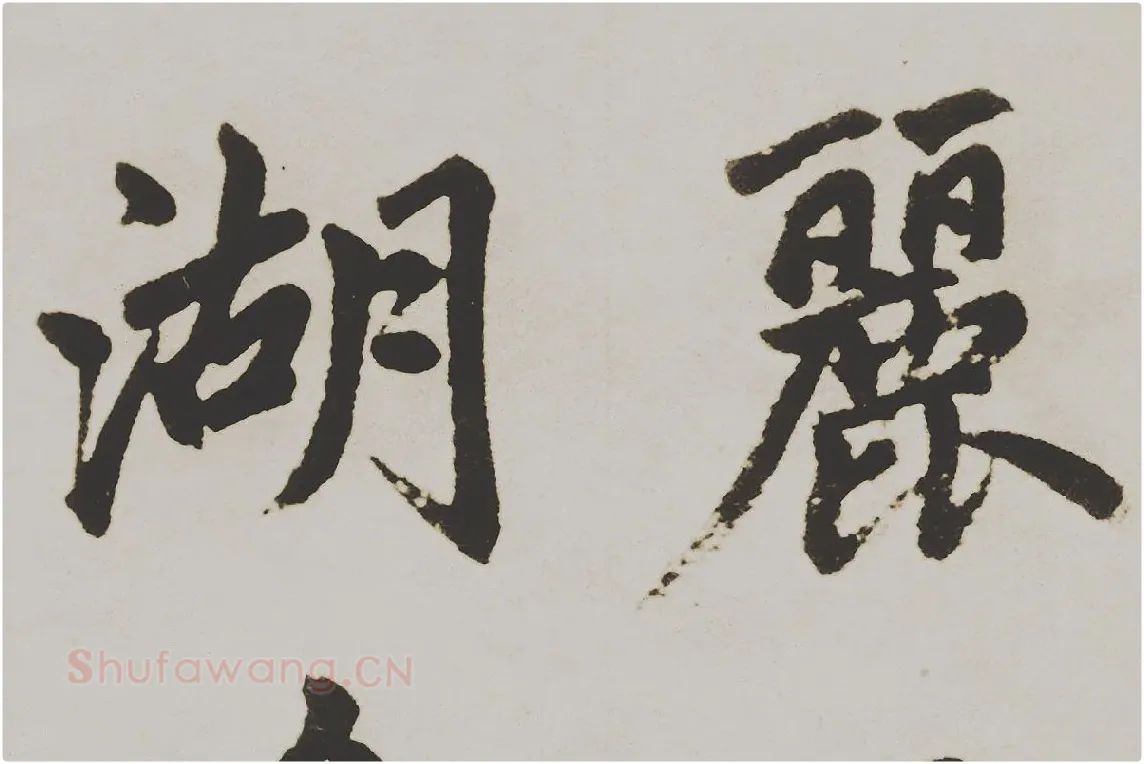 麗
湖
Shufawang.CN